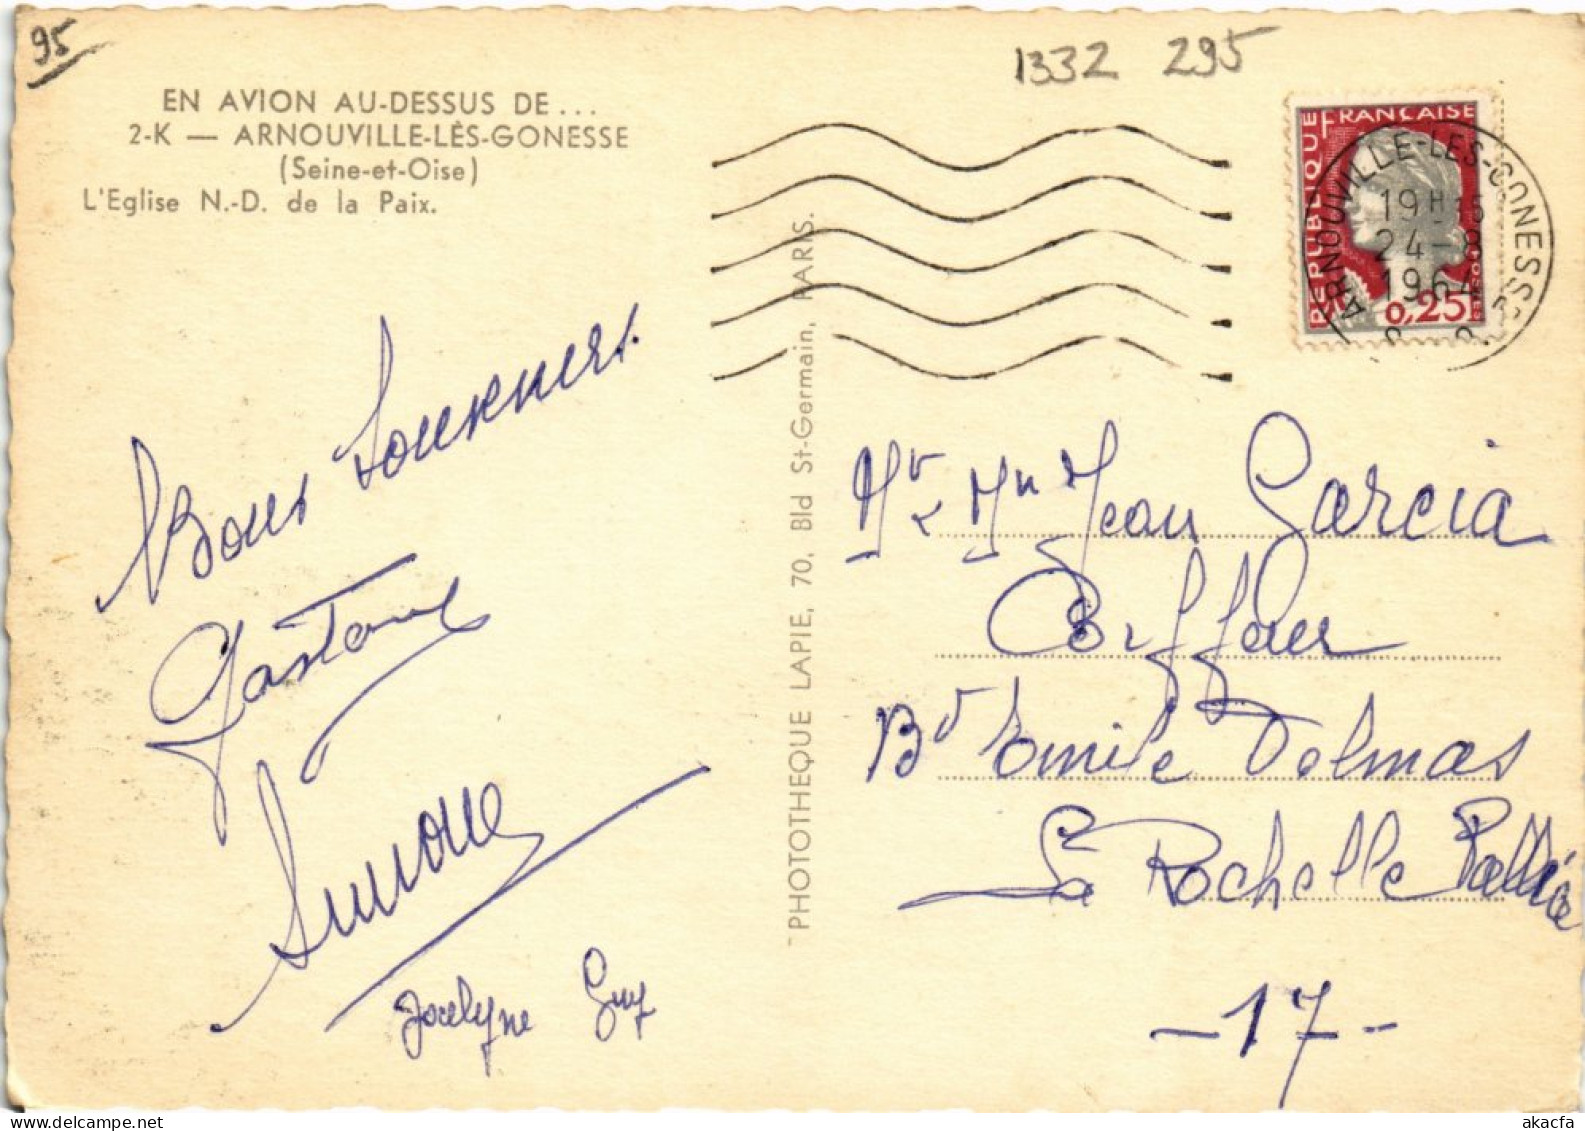 95
1332 295
EN AVION AU-DESSUS DE...
2-K — ARNOUVILLE-LÈS-GONESSE
(Seine-et-Oise)
L'Eglise N.-D. de la Paix.
RÉPUBLIQUE FRANÇAISE
0,25
ARNOUVILLE-LES-GONESSE
19H15
24-8
1964
Bons Souvenirs.
Gaston
Simone
Jocelyne Guy
PHOTOTHEQUE LAPIE, 70, Bld St-Germain, PARIS.
Mr & Mm Jean Garcia
Coiffeur
Bd Emile Delmas
La Rochelle Pallice
-17-
delcampe.net
akacfa